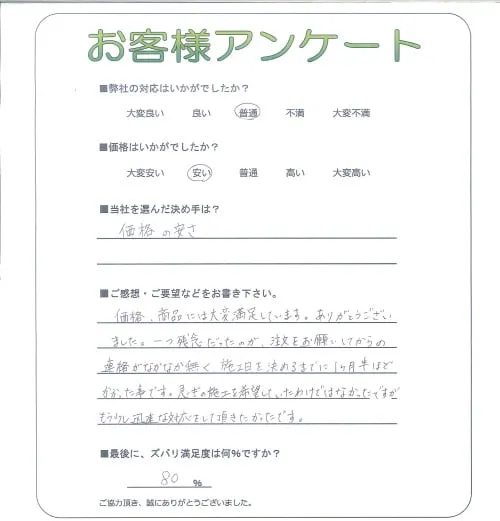 お客様アンケート
■弊社の対応はいかがでしたか？
大変良い 良い 普通 不満 大変不満
■価格はいかがでしたか？
大変安い 安い 普通 高い 大変高い
■当社を選んだ決め手は？
価格の安さ
■ご感想・ご要望などをお書き下さい。
価格、商品には大変満足しています。ありがとうござい
ました。一つ残念だったのが、注文をお願いしてからの
連絡がなかなか無く、施工日を決めるまでに1ヶ月半ほど
かかった事です。急ぎの施工を希望していたわけではなかったですが
もう少し迅速な対応をして頂きたかったです。
■最後に、ズバリ満足度は何%ですか？
80 %
ご協力頂き、誠にありがとうございました。